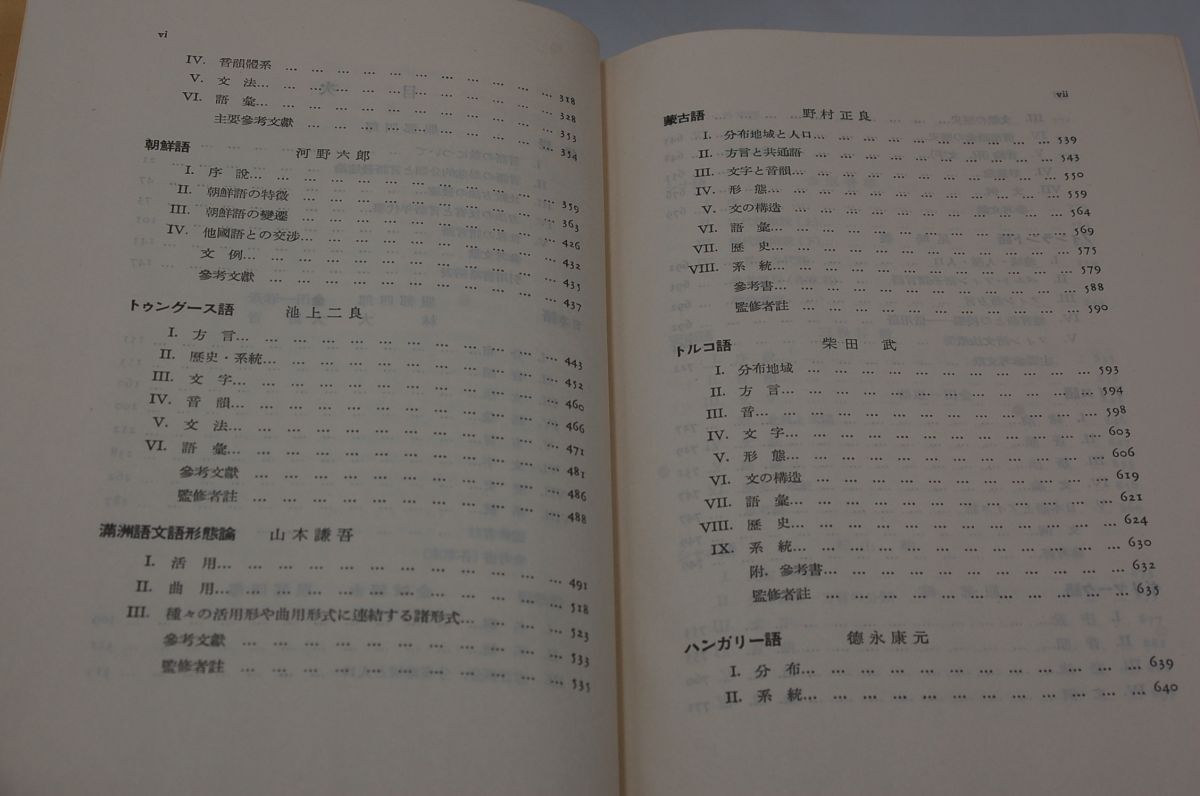 vi
IV. 音韻體系 … … … … … … … … … … … 318
V. 文 法… … … … … … … … … … … … 328
VI. 語 彙… … … … … … … … … … … … 353
主要參考文獻 … … … … … … … … … … 354
朝鮮語 河野六郎
I. 序 說… … … … … … … … … … … … 359
II. 朝鮮語の特徴 … … … … … … … … … … 363
III. 朝鮮語の變遷 … … … … … … … … … … 426
IV. 他國語との交渉 … … … … … … … … … … 432
文 例… … … … … … … … … … … … 435
參考文獻 … … … … … … … … … … … 437
トゥングース語 池上二良
I. 方 言… … … … … … … … … … … … 443
II. 歷史・系統… … … … … … … … … … … 452
III. 文 字… … … … … … … … … … … … 460
IV. 音 韻… … … … … … … … … … … … 466
V. 文 法… … … … … … … … … … … … 471
VI. 語 彙… … … … … … … … … … … … 481
參考文獻 … … … … … … … … … … … 486
監修者註 … … … … … … … … … … … 488
滿洲語文語形態論 山本謙吾
I. 活 用… … … … … … … … … … … … 491
II. 曲 用… … … … … … … … … … … … 518
III. 種々の活用形や曲用形式に連結する諸形式… … … … 523
參考文獻 … … … … … … … … … … … 533
監修者註 … … … … … … … … … … … 535
vii
蒙古語 野村正良
I. 分布地域と人口… … … … … … … … … … 539
II. 方言と共通語 … … … … … … … … … … 543
III. 文字と音韻… … … … … … … … … … … 550
IV. 形 態… … … … … … … … … … … … 559
V. 文の構造 … … … … … … … … … … … 564
VI. 語 彙… … … … … … … … … … … … 569
VII. 歷 史… … … … … … … … … … … … 575
VIII. 系 統… … … … … … … … … … … … 579
參考書… … … … … … … … … … … 588
監修者註 … … … … … … … … … … … 590
トルコ語 柴田 武
I. 分布地域 … … … … … … … … … … … 593
II. 方 言… … … … … … … … … … … … 594
III. 音… … … … … … … … … … … … … 598
IV. 文 字… … … … … … … … … … … … 603
V. 形 態… … … … … … … … … … … … 606
VI. 文の構造 … … … … … … … … … … … 619
VII. 語 彙… … … … … … … … … … … … 621
VIII. 歷 史… … … … … … … … … … … … 624
IX. 系 統… … … … … … … … … … … … 630
附. 參考書… … … … … … … … … … … 632
監修者註 … … … … … … … … … … … 635
ハンガリー語 德永康元
I. 分 布… … … … … … … … … … … … 639
II. 系 統… … … … … … … … … … … … 640